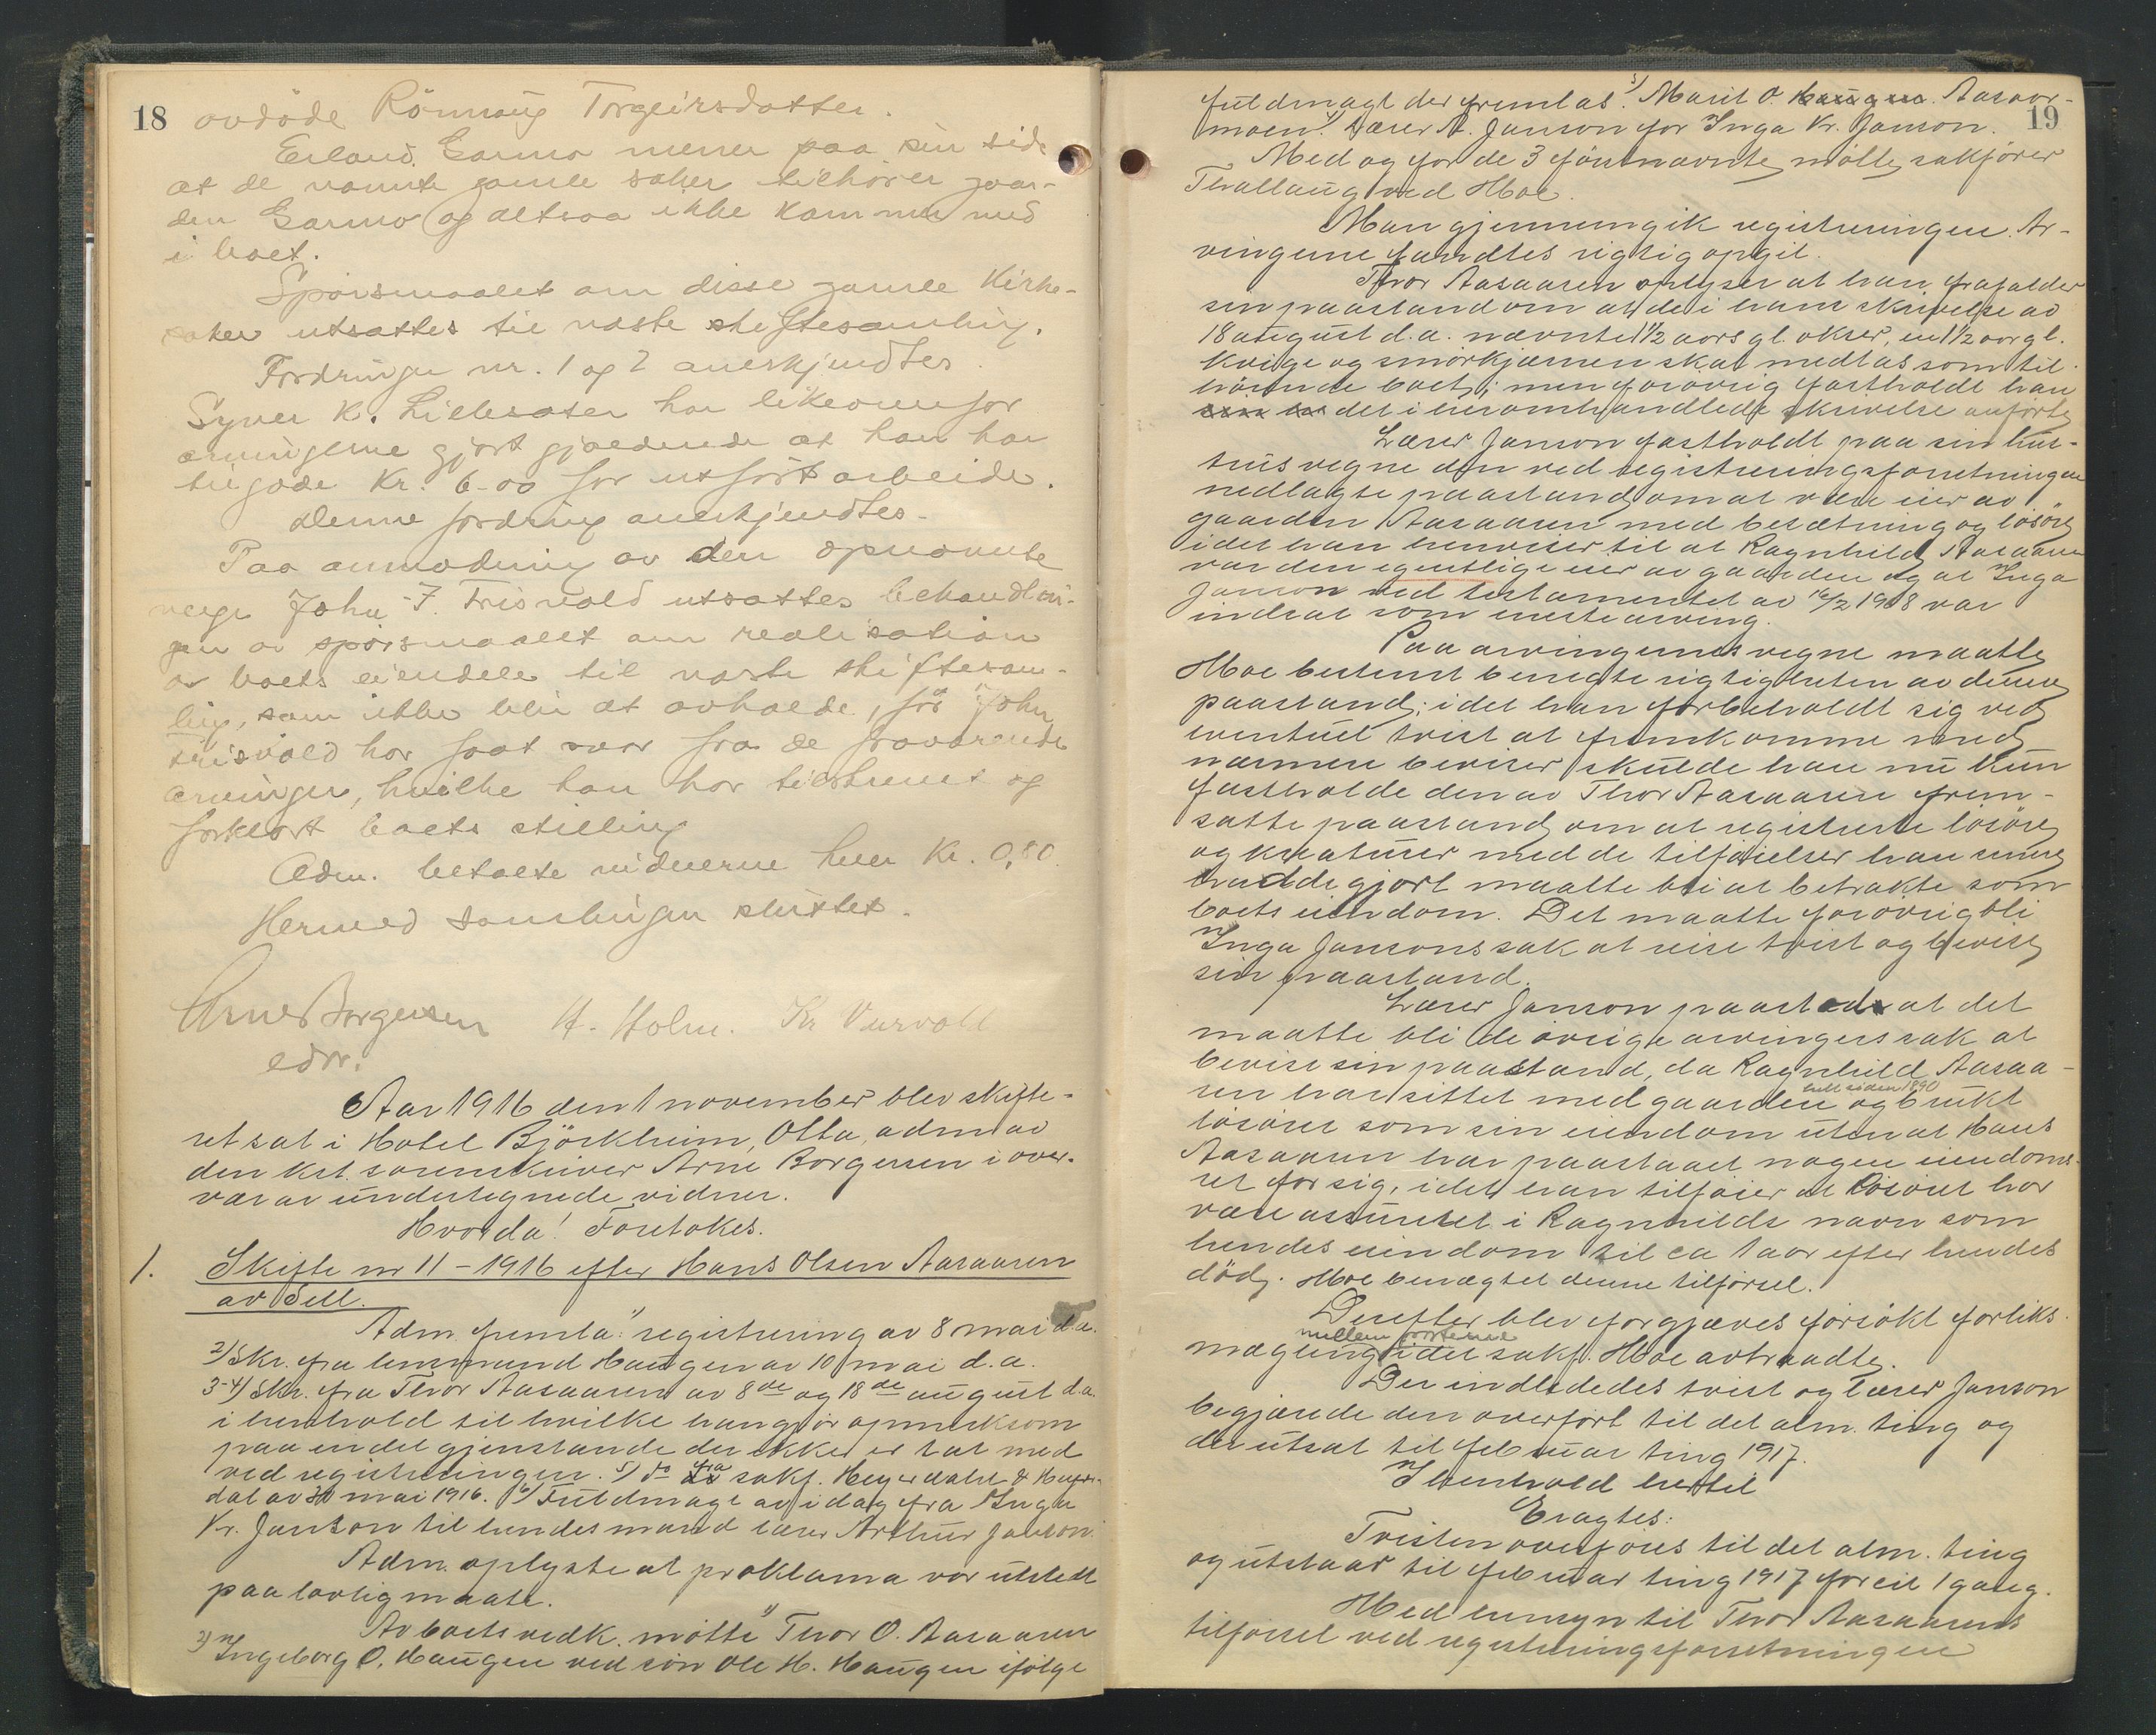 18 avdöde Rönnaug Torgeirsdatter.
Erland Garmo mener paa sin side
at de nævnte gamle saker tilhører gaar-
den Garmo og altsaa ikke kommer med
i boet.
Spörsmaalet om disse gamle kirke-
saker utsattes til næste skiftesamling.
Fordringer nr. 1 og 2 anerkjendtes.
Syver K. Lillesæter har likeoverfor
arvingerne gjort gjældende at han har
tilgode kr. 6.00 for utfört arbeide.
Denne fordring anerkjendtes.
Paa anmodning av den opnævnte
verge John J. Trisvold utsattes behandlin-
gen av spörsmaalet om realisation
av boets eiendele til næste skiftesam-
ling, som ikke blir at avholde, för John
Trisvold har faat svar fra de fraværende
arvinger, hvilke han har tilskrevet og
forklart boets stilling.
Adm. betalte vidnerne hver kr. 0,80.
Hermed samlingen sluttet.
Arne Borgersen H. Holm. Kr Vurvold
edsv.
Aar 1916 den 1 november blev skifte-
ret sat i Hotel Björkheim, Otta, adm. av
den kst. sorenskriver Arne Borgersen i over-
vær av undertegnede vidner.
Hvorda! Foretokes.
1. Skifte nr 11 – 1916 efter Hans Olsen Aasaaren
av Sell.
Adm. fremla: 1) registrering av 8 mai d.a.
2) Skr. fra lensmand Haugen av 10 mai d.a.
3-4) Skr. fra Thor Aasaaren av 8de og 18de august d.a.
i henhold til hvilke han gjör opmerksom
paa en del gjenstande der ikke er tat med
ved registreringen. 5) do fra sakf. Heyerdahl &
dal av 30 mai 1916. 6) Fuldmagt av idag fra Inga
Kr. Janson til hendes mand lærer Arthur Janson.
Adm. oplyste at proklama var utstedt
paa lovlig maate.
Av boets vedk. mötte 1) Thor O. Aasaaren
2) Ingeborg O. Haugen ved sön Ole H. Haugen ifölge
19
fuldmagt der fremlas. 3) Marit O. Haugen Aasaar-
moen. 4) Lærer A. Janson for Inga Kr. Janson.
Med og for de 3 förstnævnte mötte sakförer
Thallaug ved Hoe.
Man gjennemgik registreringen. Ar-
vingerne fandtes rigtig opgit.
Thor Aasaaren oplyser at han frafalder
sin paastand om at de i hans skrivelse av
18 august d.a. nævnte 1½ aars gl. okser, en 1½ aar gl.
kvige og smörkjærnen skal medtas som til-
hörende boet; men forövrig fastholdt han
det i heromhandlede skrivelse anförte.
Lærer Janson fastholdt paa sin hus-
trus vegne den ved registreringsforretningen
nedlagte paastand om at være eier av
gaarden Aasaaren med besætning og lösöre
idet han henviser til at Ragnhild Aasaaren
var den egentlige eier av gaarden og at Inga
Janson ved testamentet av 16/2 1908 var
indsat som enestearving.
Paa arvingernes vegne maatte
Hoe bestemt benegte rigtigheten av denne
paastand; idet han forbeholdt sig ved
eventuel tvist at fremkomme med
nærmere beviser skulde han nu kun
fastholde den av Thor Aasaaren frem-
satte paastand om at registrerte lösöre
og kreaturer med de tilföielser han senere
hadde gjort maatte bli at betrakte som
boets eiendom. Det maatte forövrig bli
Inga Jansons sak at reise tvist og bevise
sin paastand.
Lærer Janson paastod at det
maatte bli de övrige arvingers sak at
bevise sin paastand, da Ragnhild Aasaa-
ren har sittet med gaarden helt siden 1890 og brukt
lösöret som sin eiendom uten at Hans
Aasaaren har paastaaet nogen eiendoms-
ret for sig, idet han tilföier at lösöret har
være assurert i Ragnhilds navn som
hendes eiendom til ca 1 aar efter hendes
död. Hoe benægtet denne tilförsel.
Derefter blev forgjæves forsökt forliks-
mægling mellem parterne idet sakf. Hoe avtraadte.
Der indlededes tvist og lærer Janson
begjærede den overfört til det alm. ting og
der utsat til februar ting 1917.
I henhold hertil
Eragtes:
Tvisten overföres til det alm. ting
og utstaar til februar ting 1917 for eit 1 gang.
Med hensyn til Thor Aasaarens
tilförsel ved registreringsforretningen